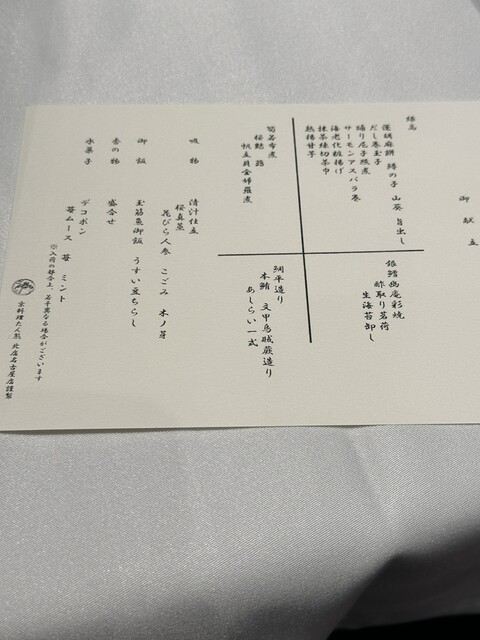 御献立
縁高
蓬胡麻餅 鱒の子 山葵 旨出し
だし巻玉子
踊り尼子照煮
サーモンアスパラ巻
海老化粧揚げ
抹茶練切茶巾
熟揚甘芋
銀鱈幽庵彩焼
酢取り茗荷
生海苔卸し
筍若布煮
桜麩 蕗
帆立貝金婦羅煮
細平造り
本鮪 文甲烏賊蕨造り
あしらい一式
吸物 清汁仕立
桜真薯
花びら人参 こごみ 木ノ芽
御飯 玉筋魚御飯 うすい豆ちらし
香の物 盛合せ
水菓子 デコポン
苺ムース 苺 ミント
※入荷の都合上、若干異なる場合がございます
京料理たん熊 北店名古屋店謹製